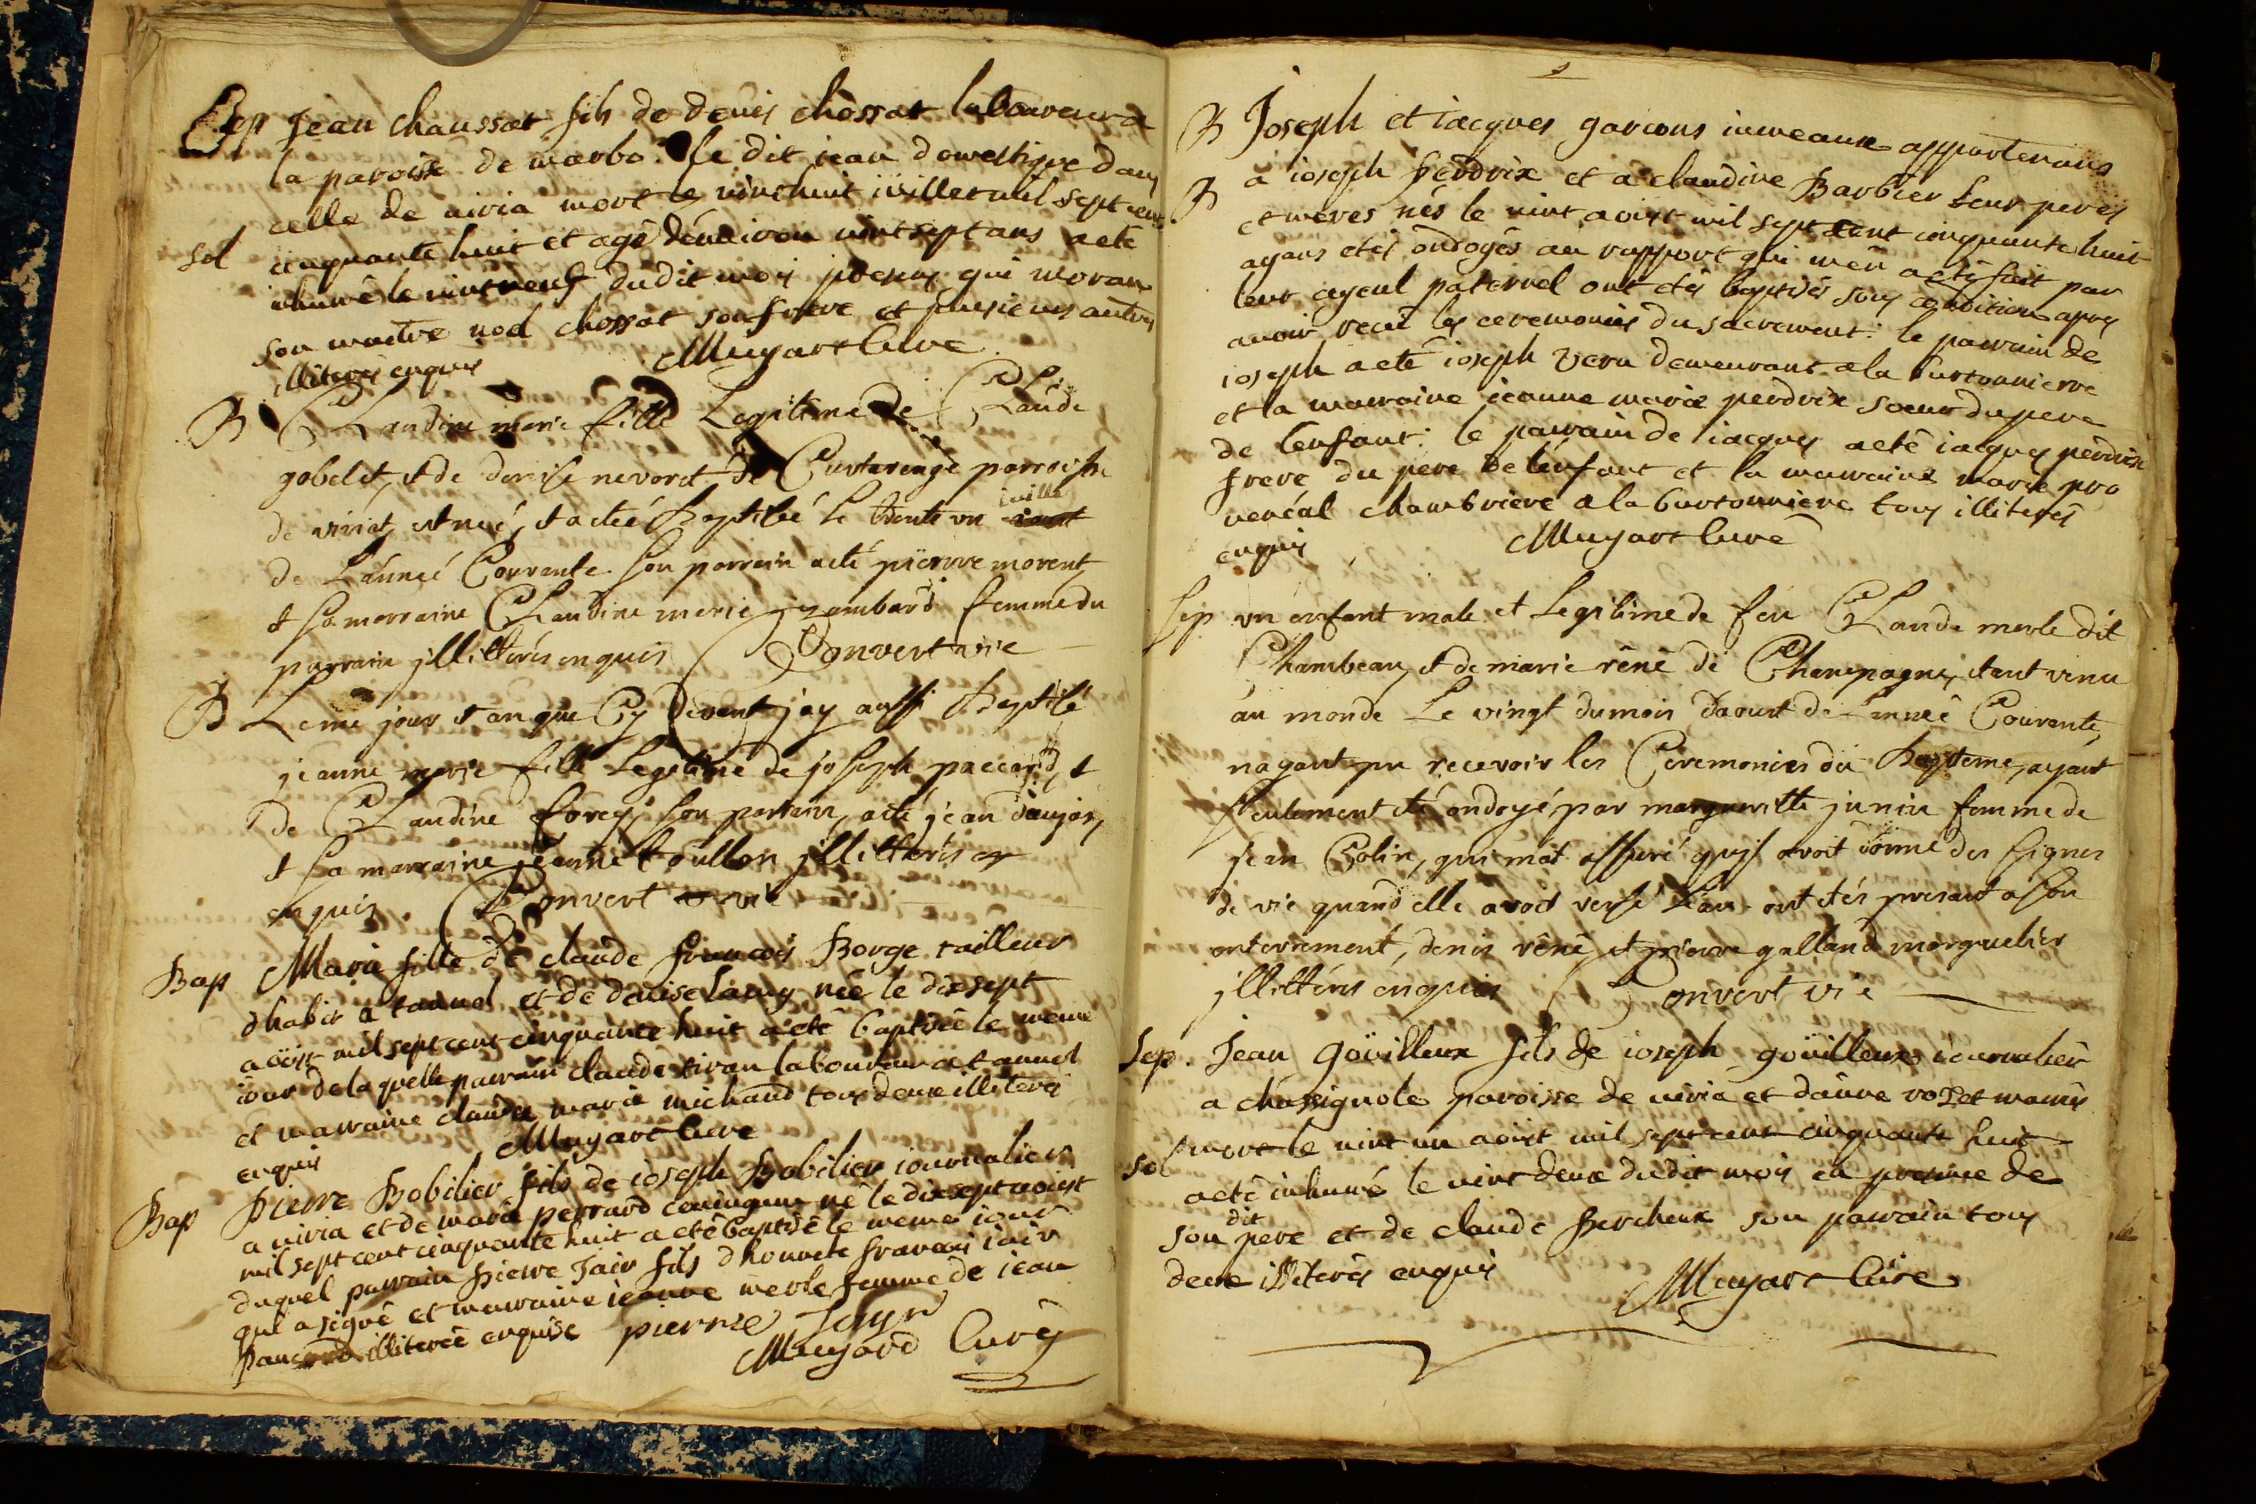 Sep Jean chaussat fils de denis chossat laboureur a
la paroisse de marbo. le dit jean domestique dans
celle de viria mort le vint huit iüillet mil sept cent
sol cinquante huit et agé dénviron vint sept ans a eté
inhumé le vint neuf du dit mois presens gui moran
son maitre noel chossat son frere et plusieurs autres
illiterés enquis Muyart Cure
B Claudine marie fille Legitime de Claude
gobelet, et de denise nevoret de Curtarenge parroisse
de viriat, est neé, et a eteé Baptiseé le trente un juillet
de L'anneé Courrente. son parrain a eté pierre morent,
et sa marraine Claudine merie jzambard femme du
parrain jllitterés enquis Convert vic
B Le me jour et an que Cy devant jay aussi Baptisé
jeanne merie fille Legitime de joseph paccard, et
de Claudine forey; son parrain, a eté jean daujat,
et sa marraine jeanne toullon jllitterés
enquis. Convert vic
Bap Marie fille de claude francois Borge tailleur
dhabit a tannel et de denise Lacuy née le dix sept
aoüst mil sept cent cinquante huit a eté baptisée le meme
iour de laquelle parrain claude tiran laboureur a tannel
et marraine claudee marie michaud tous deux illiterés
enquis Muyart Cure
Bap Pierre Bobilier fils de ioseph Bobilier iournalier
a viria et de marie perrard coniugaux né le dix sept aoust
mil sept cent cinquante huit a eté baptisé le meme iour
duquel parrain pierre Jair fils d'honnete francois iair
qui a signé et marraine jeanne merle femme de iean
paucard illiterée enquise pierre Jayr
Muyard Curé
B Joseph et iacques garcons iumeaux appartenans
a ioseph perdrix et a claudine Barbier leur peres
B et meres nés le vint aoust mil sept cent cinquante huit
ayans etés ondoyés au rapport qui m'en a eté fait par
leur ayeul paternel ont etés baptisés sous condition apres
avoir receu les ceremonies du sacrement. le parrain de
ioseph a eté ioseph veru demeurant a la burtonnierre
et la marraine jeanne marie perdrix soeur du pere
de l'enfant. le parrain de iacques a eté iacques perdrix
frere du pere de l'enfant et la marraine marie pro
vencal chambriere a la burtonniere tous illiterés
enquis Muyart Curé
Sep un enfant male et Legitime de feu Claude merle dit
Chambeau, et de marie réné de Champagne, étant venu
au monde Le vingt du mois d'aoust de L'année Courente,
n'ayant pu recevoir les Ceremonies du Bapteme, ayant
seulement été ondoyé par margueritte junin femme de
jean Colin, qui m'at assuré qu'jl avoit donné des signes
de vie quand elle avoit versé L'eau. ont étés present a son
enterrement, denis réné et pierre galland marguelier
jllittérés enquis Convert vic
Sep. Jean goüilleux fils de ioseph goüilleux iournalier
a chassignole paroisse de viria et d'anne roset mariés
sol mort le vint un aoüst mil sept cent cinquante huit
a eté inhumé le vint deux du dit mois en presence de
son dit pere et de claude Bercheux son parrain tous
deux illiterés enquis Muyart Cure